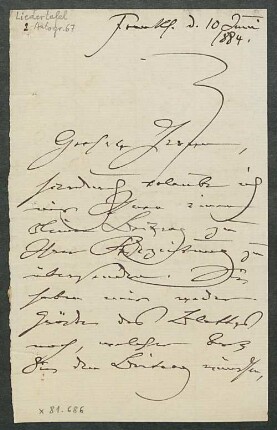 Liedertafel
2. Autogr. 67
Frankf. d. 10 Juni
1884.
Geehrter Herr,
hierdurch erlaube ich
mir Ihnen einen
kleinen Beitrag zu
Ihrer Festzeitung zu
übersenden. Sie
haben mir weder
Größe des Blattes
noch, welcher Art
Sie den Beitrag wünschen,
x 81.686